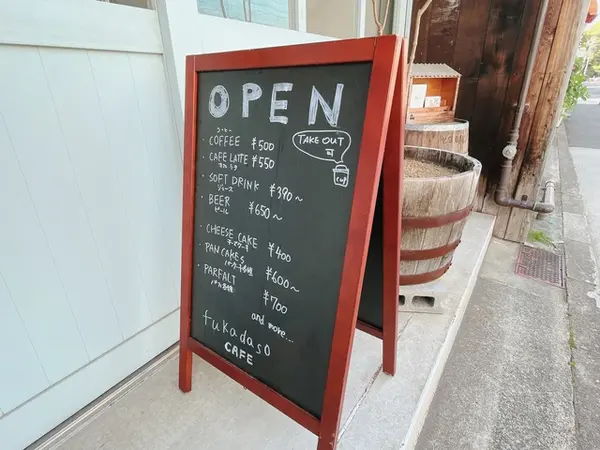 OPEN
コーヒー
COFFEE ¥500
CAFE LATTE ¥550
カフェラテ
SOFT DRINK ¥390~
ジュース
BEER ¥650~
ビール
CHEESE CAKE ¥400
チーズケーキ
PANCAKES ¥600~
PARFAIT ¥700
and more...
fukadaso
CAFE
TAKE OUT
可
cup